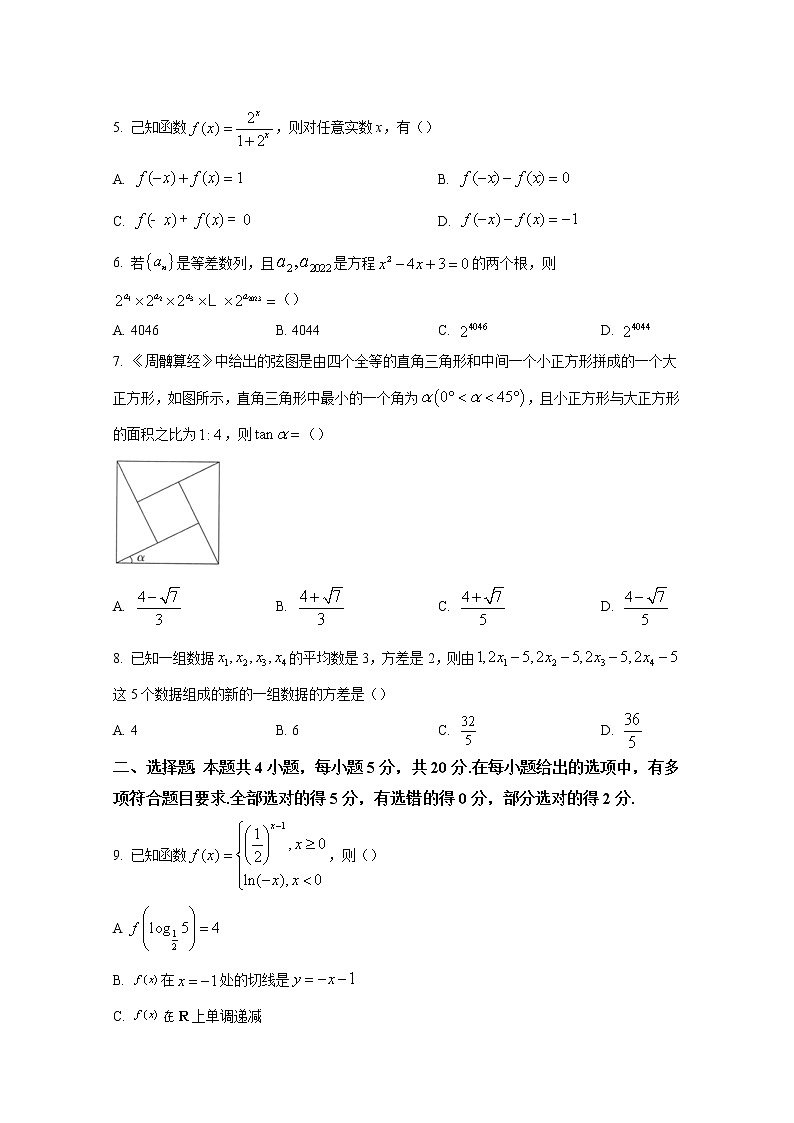 5. 己知函数 f(x) = 2^x / (1+2^x) ，则对任意实数 x，有（）
A. f(−x) + f(x) = 1 B. f(−x) − f(x) = 0
C. f(- x) + f(x) = 0 D. f(−x) − f(x) = −1
6. 若{a_n}是等差数列，且a_2, a_2022是方程x^2 − 4x + 3 = 0的两个根，则
2^{a_1} × 2^{a_2} × 2^{a_3} × L × 2^{a_2023} =（）
A. 4046 B. 4044 C. 2^4046 D. 2^4044
7. 《周髀算经》中给出的弦图是由四个全等的直角三角形和中间一个小正方形拼成的一个大
正方形，如图所示，直角三角形中最小的一个角为α(0° < α < 45°)，且小正方形与大正方形
的面积之比为1: 4，则 tan α =（）
α
A. (4 − √7)/3 B. (4 + √7)/3 C. (4 + √7)/5 D. (4 − √7)/5
8. 已知一组数据x_1, x_2, x_3, x_4的平均数是 3，方差是 2，则由1, 2x_1 − 5, 2x_2 − 5, 2x_3 − 5, 2x_4 − 5
这 5 个数据组成的新的一组数据的方差是（）
A. 4 B. 6 C. 32/5 D. 36/5
二、选择题 本题共 4 小题，每小题 5 分，共 20 分.在每小题给出的选项中，有多
项符合题目要求.全部选对的得 5 分，有选错的得 0 分，部分选对的得 2 分.
9. 已知函数 f(x) = { (1/2)^{x−1}, x ≥ 0
ln(−x), x < 0 ，则（）
A f(log_{1/2} 5) = 4
B. f(x)在x = −1处的切线是y = −x − 1
C. f(x) 在 R 上单调递减